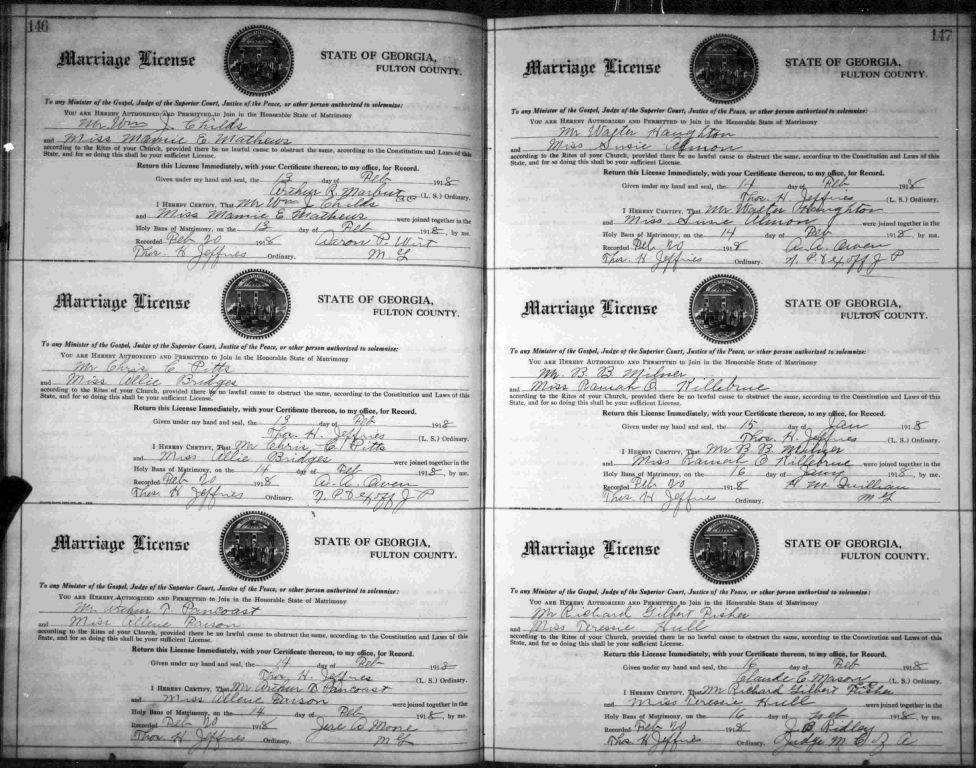 146
Marriage License
STATE OF GEORGIA,
FULTON COUNTY.
To any Minister of the Gospel, Judge of the Superior Court, Justice of the Peace, or other person authorized to solemnize:
YOU ARE HEREBY AUTHORIZED AND PERMITTED to Join in the Honorable State of Matrimony
Mr Wm J. Childs
and Miss Mamie E Mathews
according to the Rites of your Church, provided there be no lawful cause to obstruct the same, according to the Constitution and Laws of this
State, and for so doing this shall be your sufficient License.
Return this License Immediately, with your Certificate thereon, to my office, for Record.
Given under my hand and seal, the 13 day of Feb 1918
Arthur R Marbut (L. S.) Ordinary.
I HEREBY CERTIFY, That Mr Wm J Childs
and Miss Mamie E. Mathews were joined together in the
Holy Bans of Matrimony, on the 13 day of Feb 1918, by me.
Recorded Feb 20 1918 Aaron P. Wirt
Thos. H Jeffries Ordinary. M G
Marriage License
STATE OF GEORGIA,
FULTON COUNTY.
To any Minister of the Gospel, Judge of the Superior Court, Justice of the Peace, or other person authorized to solemnize:
YOU ARE HEREBY AUTHORIZED AND PERMITTED to Join in the Honorable State of Matrimony
Mr Chris C Pitts
and Miss Allie Bridges
according to the Rites of your Church, provided there be no lawful cause to obstruct the same, according to the Constitution and Laws of this
State, and for so doing this shall be your sufficient License.
Return this License Immediately, with your Certificate thereon, to my office, for Record.
Given under my hand and seal, the 13 day of Feb 1918
Thos. H. Jeffries (L. S.) Ordinary.
I HEREBY CERTIFY, That Mr Chris C Pitts
and Miss Allie Bridges were joined together in the
Holy Bans of Matrimony, on the 14 day of Feb 1918, by me.
Recorded Feb 20 1918 A. A. Owen
Thos H Jeffries Ordinary. N. P. & Ex off J P
Marriage License
STATE OF GEORGIA,
FULTON COUNTY.
To any Minister of the Gospel, Judge of the Superior Court, Justice of the Peace, or other person authorized to solemnize:
YOU ARE HEREBY AUTHORIZED AND PERMITTED to Join in the Honorable State of Matrimony
Mr Arthur T. Pancoast
and Miss Allene
according to the Rites of your Church, provided there be no lawful cause to obstruct the same, according to the Constitution and Laws of this
State, and for so doing this shall be your sufficient License.
Return this License Immediately, with your Certificate thereon, to my office, for Record.
Given under my hand and seal, the 14 day of Feb 1918
Thos. H. Jeffries (L. S.) Ordinary.
I HEREBY CERTIFY, That Mr Arthur T Pancoast
and Miss Allene were joined together in the
Holy Bans of Matrimony, on the 14 day of Feb 1918, by me.
Recorded Feb 20 1918 Jere A Moore
Thos H Jeffries Ordinary. M G
147
Marriage License
STATE OF GEORGIA,
FULTON COUNTY.
To any Minister of the Gospel, Judge of the Superior Court, Justice of the Peace, or other person authorized to solemnize:
YOU ARE HEREBY AUTHORIZED AND PERMITTED to Join in the Honorable State of Matrimony
Mr Walter Haughton
and Miss Susie Almon
according to the Rites of your Church, provided there be no lawful cause to obstruct the same, according to the Constitution and Laws of this
State, and for so doing this shall be your sufficient License.
Return this License Immediately, with your Certificate thereon, to my office, for Record.
Given under my hand and seal, the 14 day of Feb 1918
Thos H Jeffries (L. S.) Ordinary.
I HEREBY CERTIFY, That Mr Walter Haughton
and Miss Susie Almon were joined together in the
Holy Bans of Matrimony, on the 14 day of Feb 1918, by me.
Recorded Feb 20 1918 A. A. Owen
Thos. H Jeffries Ordinary. N. P. & Ex off J P
Marriage License
STATE OF GEORGIA,
FULTON COUNTY.
To any Minister of the Gospel, Judge of the Superior Court, Justice of the Peace, or other person authorized to solemnize:
YOU ARE HEREBY AUTHORIZED AND PERMITTED to Join in the Honorable State of Matrimony
Mr. B. B Milner
and Miss Ramah O. Killebrue
according to the Rites of your Church, provided there be no lawful cause to obstruct the same, according to the Constitution and Laws of this
State, and for so doing this shall be your sufficient License.
Return this License Immediately, with your Certificate thereon, to my office, for Record.
Given under my hand and seal, the 15 day of Jan 1918
Thos. H. Jeffries (L. S.) Ordinary.
I HEREBY CERTIFY, That Mr B B Milner
and Miss Ramah O Killebrue were joined together in the
Holy Bans of Matrimony, on the 16 day of Jany 1918, by me.
Recorded Feb 20 1918 H M Quillian
Thos. H Jeffries Ordinary. M G
Marriage License
STATE OF GEORGIA,
FULTON COUNTY.
To any Minister of the Gospel, Judge of the Superior Court, Justice of the Peace, or other person authorized to solemnize:
YOU ARE HEREBY AUTHORIZED AND PERMITTED to Join in the Honorable State of Matrimony
Mr Richard Gilbert Fisher
and Miss Teressie Hull
according to the Rites of your Church, provided there be no lawful cause to obstruct the same, according to the Constitution and Laws of this
State, and for so doing this shall be your sufficient License.
Return this License Immediately, with your Certificate thereon, to my office, for Record.
Given under my hand and seal, the 16 day of Feb 1918
Claude C Mason (L. S.) Ordinary.
I HEREBY CERTIFY, That Mr Richard Gilbert Fisher
and Miss Teressie Hull were joined together in the
Holy Bans of Matrimony, on the 16 day of Feb 1918, by me.
Recorded Feb 20 1918 J. B. Ridley
Thos. H Jeffries Ordinary. Judge M C of A